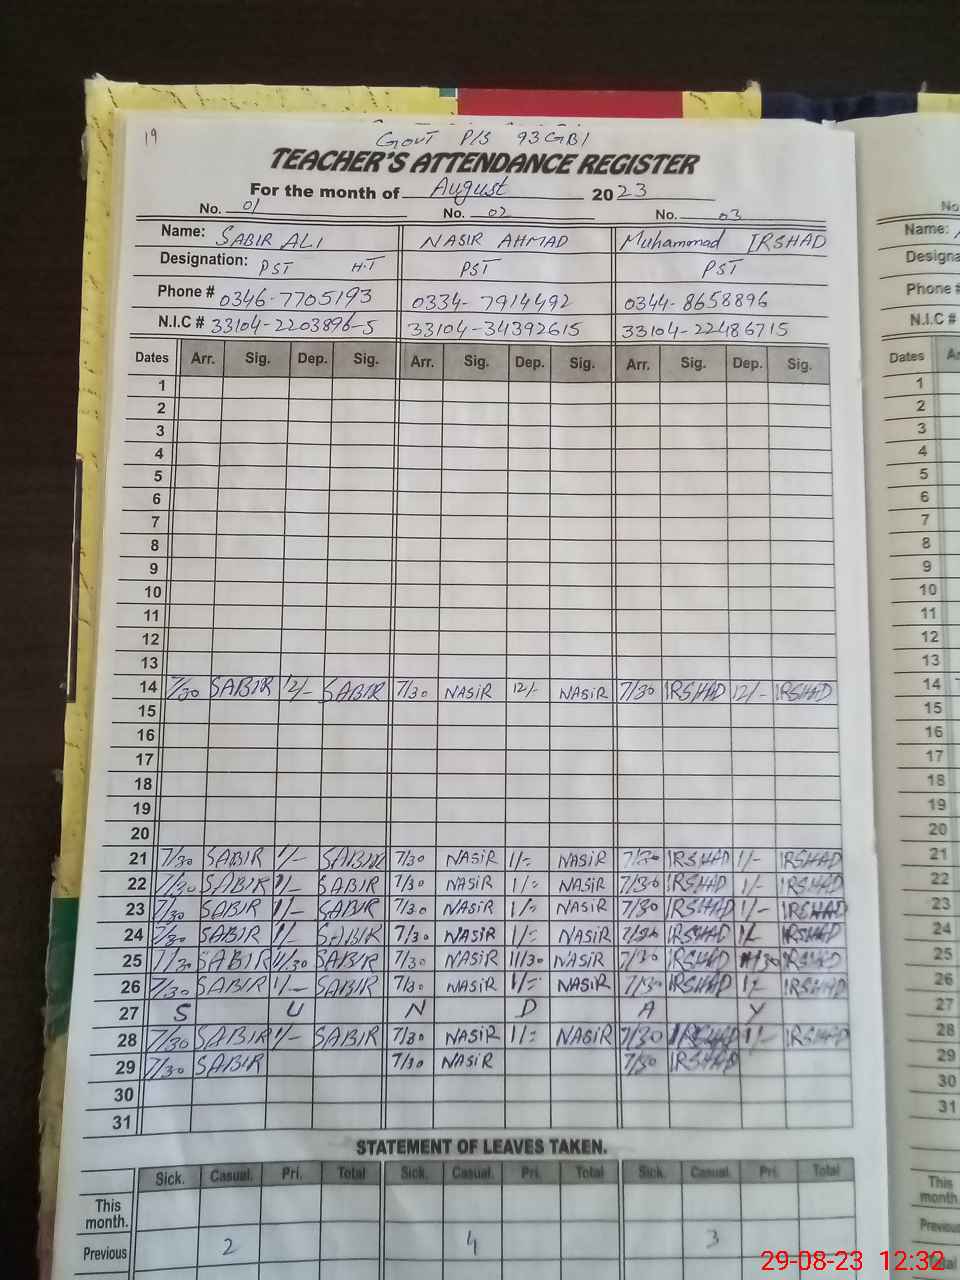 19
Govt P/S 93GB1
TEACHER'S ATTENDANCE REGISTER
For the month of August 2023
No. 01 No. 02 No. 03
Name: SABIR ALI NASIR AHMAD Muhammad IRSHAD
Designation: PST H.T PST PST
Phone # 0346-7705193 0334-7914492 0344-8658896
N.I.C # 33104-2203896-5 33104-34392615 33104-22486715
Dates Arr. Sig. Dep. Sig. Arr. Sig. Dep. Sig. Arr. Sig. Dep. Sig.
1
2
3
4
5
6
7
8
9
10
11
12
13
14 7/30 SABIR 12/- SABIR 7/30 NASIR 12/- NASIR 7/30 IRSHAD 12/- IRSHAD
15
16
17
18
19
20
21 7/30 SABIR 1/- SABIR 7/30 NASIR 1/- NASIR 7/30 IRSHAD 1/- IRSHAD
22 7/30 SABIR 1/- SABIR 7/30 NASIR 1/- NASIR 7/30 IRSHAD 1/- IRSHAD
23 7/30 SABIR 1/- SABIR 7/30 NASIR 1/- NASIR 7/30 IRSHAD 1/- IRSHAD
24 7/30 SABIR 1/- SABIR 7/30 NASIR 1/- NASIR 7/30 IRSHAD 1/- IRSHAD
25 7/30 SABIR 11/30 SABIR 7/30 NASIR 11/30 NASIR 7/30 IRSHAD 11/30 IRSHAD
26 7/30 SABIR 1/- SABIR 7/30 NASIR 1/- NASIR 7/30 IRSHAD 1/- IRSHAD
27 S U N D A Y
28 7/30 SABIR 1/- SABIR 7/30 NASIR 1/- NASIR 7/30 IRSHAD 1/- IRSHAD
29 7/30 SABIR 7/30 NASIR 7/30 IRSHAD
30
31
STATEMENT OF LEAVES TAKEN.
Sick. Casual. Pri. Total Sick. Casual. Pri. Total Sick. Casual. Pri. Total
This
month.
Previous 2 4 3
No
Name:
Designa
Phone #
N.I.C #
Dates
1
2
3
4
5
6
7
8
9
10
11
12
13
14
15
16
17
18
19
20
21
22
23
24
25
26
27
28
29
30
31
This
month
Previous
29-08-23 12:32